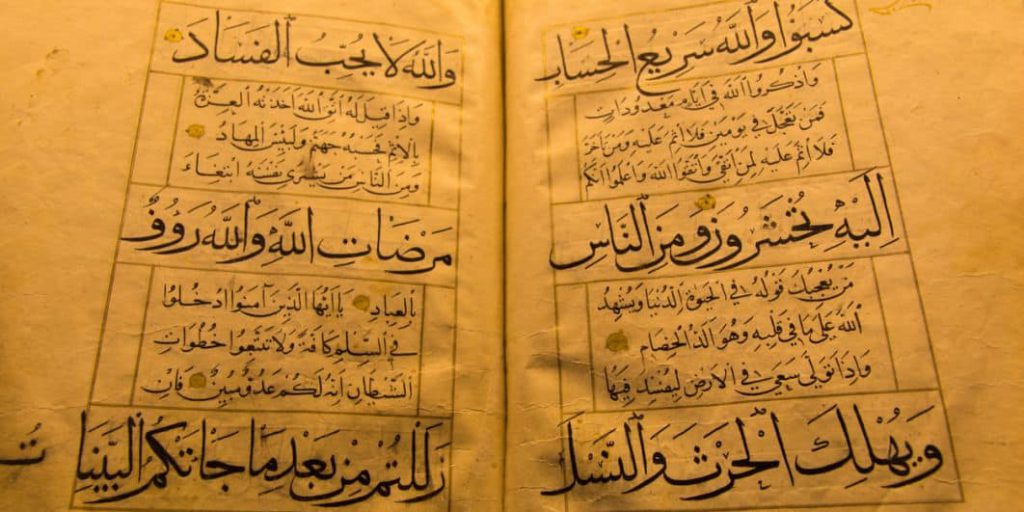 كَسَبُوا وَاللَّهُ سَرِيعُ الْحِسَابِ
وَاذْكُرُوا اللَّهَ فِي أَيَّامٍ مَعْدُودَاتٍ
فَمَنْ تَعَجَّلَ فِي يَوْمَيْنِ فَلَا إِثْمَ عَلَيْهِ وَمَنْ تَأَخَّرَ
فَلَا إِثْمَ عَلَيْهِ لِمَنِ اتَّقَى وَاتَّقُوا اللَّهَ وَاعْلَمُوا أَنَّكُمْ
إِلَيْهِ تُحْشَرُونَ وَمِنَ النَّاسِ
مَنْ يُعْجِبُكَ قَوْلُهُ فِي الْحَيٰوةِ الدُّنْيَا وَيُشْهِدُ
اللَّهَ عَلَى مَا فِي قَلْبِهِ وَهُوَ أَلَدُّ الْخِصَامِ
وَإِذَا تَوَلَّى سَعَى فِي الْأَرْضِ لِيُفْسِدَ فِيهَا
وَيُهْلِكَ الْحَرْثَ وَالنَّسْلَ
وَاللَّهُ لَا يُحِبُّ الْفَسَادَ
وَإِذَا قِيلَ لَهُ اتَّقِ اللَّهَ أَخَذَتْهُ الْعِزَّةُ
بِالْإِثْمِ فَحَسْبُهُ جَهَنَّمُ وَلَبِئْسَ الْمِهَادُ
وَمِنَ النَّاسِ مَنْ يَشْرِى نَفْسَهُ ابْتِغَاءَ
مَرْضَاتِ اللَّهِ وَاللَّهُ رَؤُوفٌ
بِالْعِبَادِ يَا أَيُّهَا الَّذِينَ آمَنُوا ادْخُلُوا
فِي السِّلْمِ كَافَّةً وَلَا تَتَّبِعُوا خُطُوَاتِ
الشَّيْطَانِ إِنَّهُ لَكُمْ عَدُوٌّ مُبِينٌ فَإِنْ
زَلَلْتُمْ مِنْ بَعْدِ مَا جَاءَتْكُمُ الْبَيِّنَاتُ